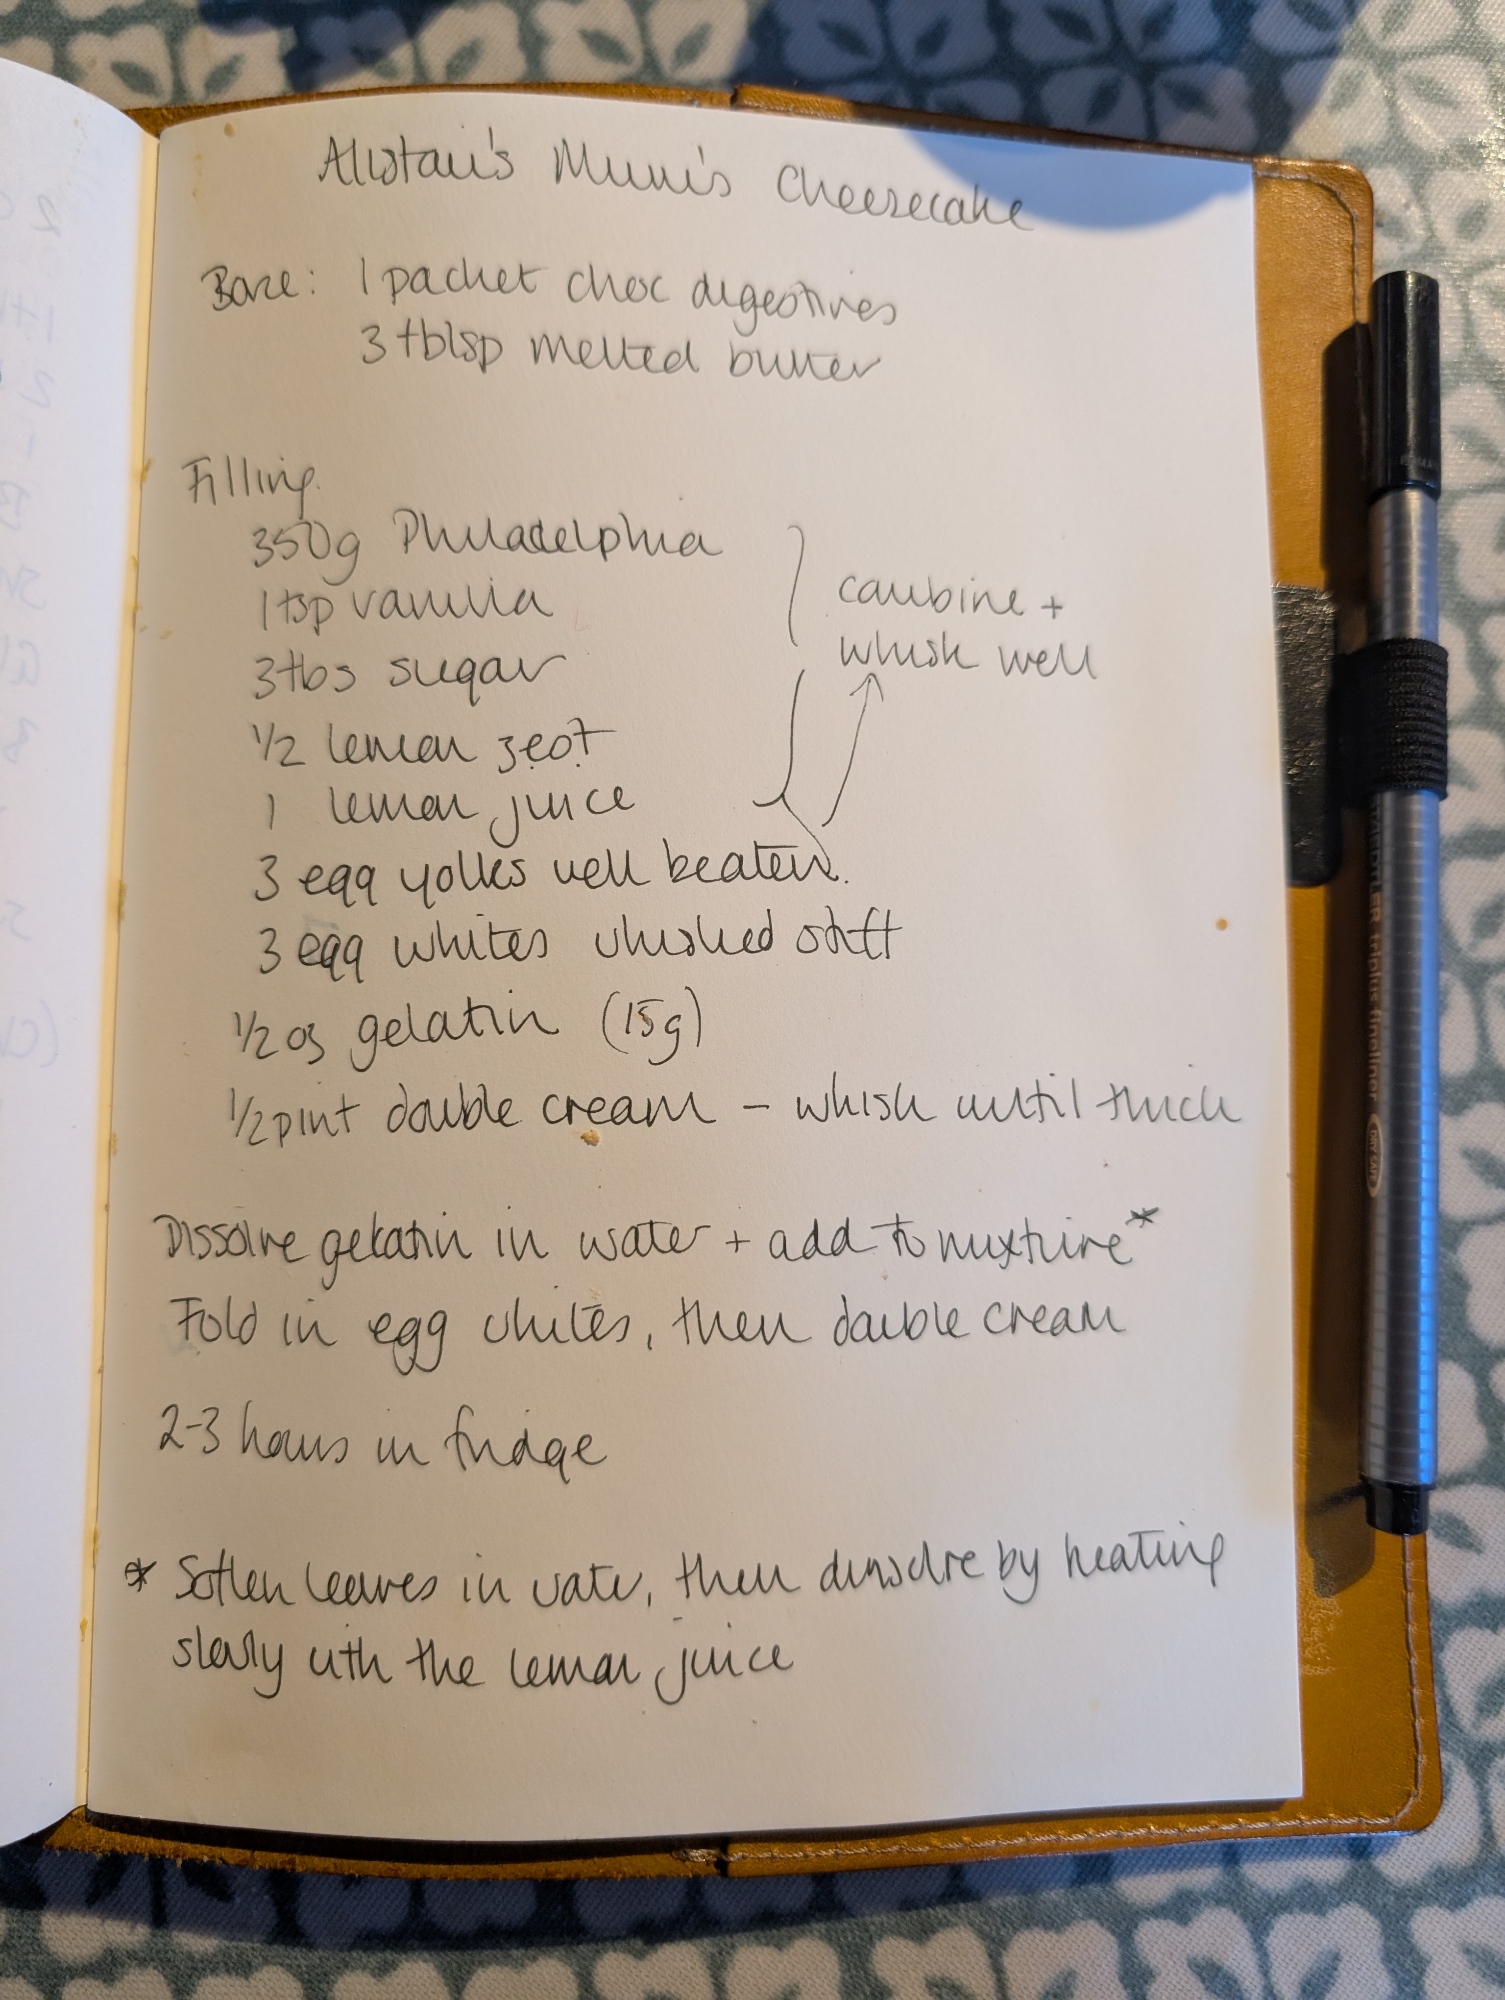 Alistair's Mum's Cheesecake
Base: 1 packet choc digestives
3 tblsp melted butter
Filling.
350g Philadelphia
1 tsp vanilla
3 tbs sugar
1/2 lemon zest
1 lemon juice
combine +
whisk well
3 egg yolks well beaten.
3 egg whites whisked stiff
1/2 oz gelatin (15g)
1/2 pint double cream – whisk until thick
Dissolve gelatin in water + add to mixture*
Fold in egg whites, then double cream
2-3 hours in fridge
* Soften leaves in water, then dissolve by heating
slowly with the lemon juice
STAEDTLER triplus fineliner DRY SAFE